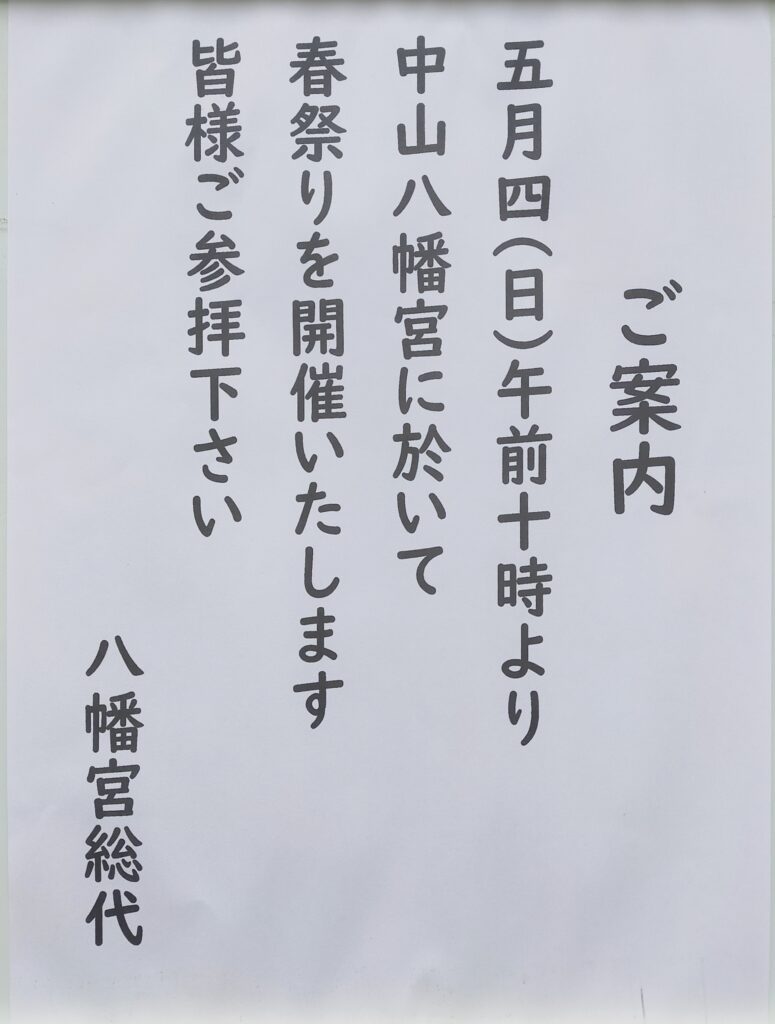 ご案内
五月四(日)午前十時より
中山八幡宮に於いて
春祭りを開催いたします
皆様ご参拝下さい
八幡宮総代